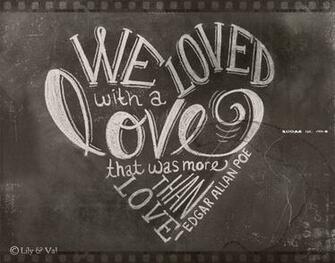 WE LOVED
with a
love
that was more
THAN
LOVE
-EDGAR ALLAN POE
© Lily & Val